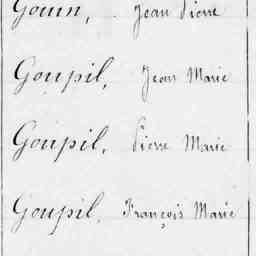 Gouin, Jean Pierre
Goupil, Jean Marie
Goupil, Pierre Marie
Goupil, François Marie